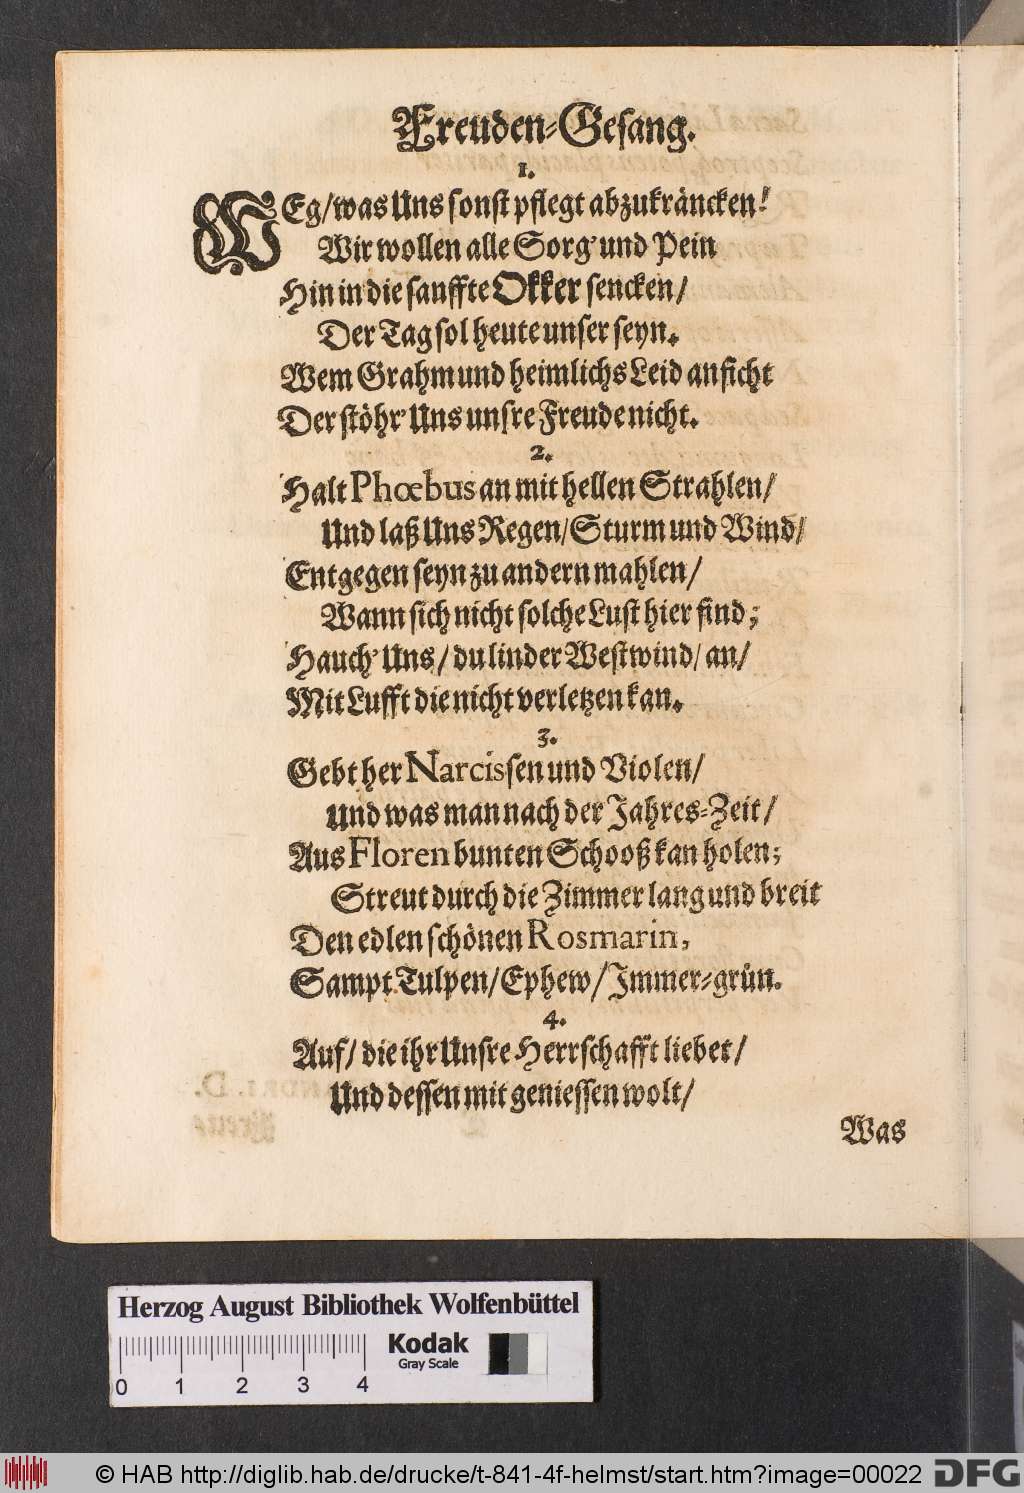 Freuden-Gesang.
1.
WEg/was Uns sonst pflegt abzukräncken!
Wir wollen alle Sorg' und Pein
Hin in die sanffte Okker sencken/
Der Tag sol heute unser seyn.
Wem Grahm und heimlichs Leid anficht
Der stöhr' Uns unsre Freude nicht.
2.
Halt Phœbus an mit hellen Strahlen/
Und laß Uns Regen/Sturm und Wind/
Entgegen seyn zu andern mahlen/
Wann sich nicht solche Lust hier find;
Hauch' Uns/du linder Westwind/an/
Mit Lufft die nicht verletzen kan.
3.
Gebt her Narcissen und Violen/
Und was man nach der Jahres-Zeit/
Aus Floren bunten Schooß kan holen;
Streut durch die Zimmer lang und breit
Den edlen schönen Rosmarin,
Sampt Tulpen/Ephew/Jmmer-grün.
4.
Auf/die ihr Unsre Herrschafft liebet/
Und dessen mit geniessen wolt/
Was
Herzog August Bibliothek Wolfenbüttel
Kodak
Gray Scale
0 1 2 3 4
© HAB http://diglib.hab.de/drucke/t-841-4f-helmst/start.htm?image=00022
DFG